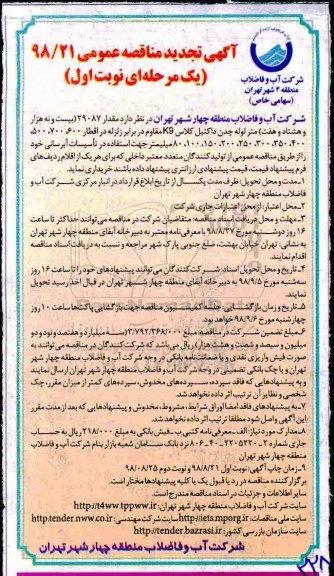 آگهی تجدید مناقصه عمومی ۹۸/۲۱
(یک مرحله‌ای نوبت اول)
شرکت آب و فاضلاب
منطقه ۴ شهر تهران
(سهامی خاص)
شرکت آب و فاضلاب منطقه چهار شهر تهران در نظر دارد مقدار ۲۹۰۸۷ (بیست و نه هزار
و هشتاد و هفت) متر لوله چدن داکتیل کلاس K9 مقاوم در برابر زلزله در اقطار ۶۰۰، ۷۰۰، ۵۰۰،
۴۰۰، ۳۵۰، ۳۰۰، ۲۵۰، ۲۰۰، ۱۵۰، ۱۰۰، ۸۰ میلیمتر جهت استفاده در تأسیسات آبرسانی خود
را از طریق مناقصه عمومی از تولیدکنندگان متعدد معتبر داخلی که برای هر یک از اقلام ردیف‌های
فرم پیشنهاد قیمت، قیمت پیشنهادی ارزانتری پیشنهاد داده باشند خریداری نماید.
۱_مدت و محل تحویل: ظرف مدت یکسال از تاریخ ابلاغ قرارداد در انبار مرکزی شرکت آب و
فاضلاب منطقه چهار شهر تهران
۲_محل اعتبار: از محل اعتبارات جاری شرکت
۳_مهلت و محل دریافت اسناد مناقصه: متقاضیان شرکت در مناقصه می‌توانند حداکثر تا ساعت
۱۶ روز دوشنبه مورخ ۹۸/۸/۲۷ با معرفی‌نامه معتبر به دبیرخانه آبفای منطقه چهار شهر تهران
به نشانی: تهران خیابان بهشت، ضلع جنوبی پارک شهر مراجعه و نسبت به دریافت اسناد مناقصه
اقدام نمایند.
۴_تاریخ و محل تحویل اسناد: شرکت‌کنندگان می‌توانند پیشنهادهای خود را تا ساعت ۱۶ روز
سه‌شنبه مورخ ۹۸/۹/۵ به دبیرخانه آبفای منطقه چهار شهر تهران در قبال اخذ رسید تحویل
نمایند.
۵_تاریخ و زمان بازگشایی: جلسه کمیسیون مناقصه جهت بازگشایی پاکت‌ها ساعت ۱۰ روز
چهارشنبه مورخ ۹۸/۹/۶ خواهد بود.
۶_مبلغ تضمین شرکت در مناقصه مبلغ ۳/۷۹۲/۳۶۸/۰۰۰ (سه میلیارد و هفتصد و نود و دو
میلیون و سیصد و شصت و هشت هزار) ریال می‌باشد که شرکت‌کنندگان در مناقصه می‌توانند به
صورت فیش واریزی نقدی و یا ضمانت‌نامه بانکی در وجه شرکت آب و فاضلاب منطقه چهار شهر
تهران و یا چک بانکی تضمینی در وجه شرکت آب و فاضلاب منطقه چهار شهر تهران ارسال نمایند
و به پیشنهادهایی که فاقد سپرده، سپرده‌های مخدوش، سپرده‌های کمتر از میزان مقرر، چک
شخصی و نظایر آن ترتیب اثر داده نخواهد شد.
۷_به پیشنهادهای فاقد امضا اوراق شرایط، مشروط، مخدوش و پیشنهادهایی که بعد از مدت مقرر
این آگهی واصل شود مطلقا ترتیب اثر داده نخواهد شد.
۸_مدارک مورد نیاز: الف_معرفی‌نامه کتبی ب_فیش بانکی به مبلغ ۲۱۸/۰۰۰ ریال به حساب
جاری شماره
نزد بانک سامان شعبه بازار بنام شرکت آب و فاضلاب
منطقه چهار شهر تهران
۹_زمان چاپ آگهی: نوبت اول ۹۸/۸/۲۱ و نوبت دوم ۹۸/۰۸/۲۵
برگزارکننده مناقصه در رد یا قبول یک یا کلیه پیشنهادها مختار است.
سایر اطلاعات و جزئیات در اسناد مناقصه مندرج است.
سایت شرکت آب و فاضلاب منطقه چهار شهر تهران: http://t4ww.tppww.ir
سایت ملی مناقصات: http://iets.mporg.ir سایت شرکت مهندسی: http://tender.nww.co.ir
سایت سازمان بازرسی کشور: http://tender.bazrasi.ir
شرکت آب و فاضلاب منطقه چهار شهر تهران